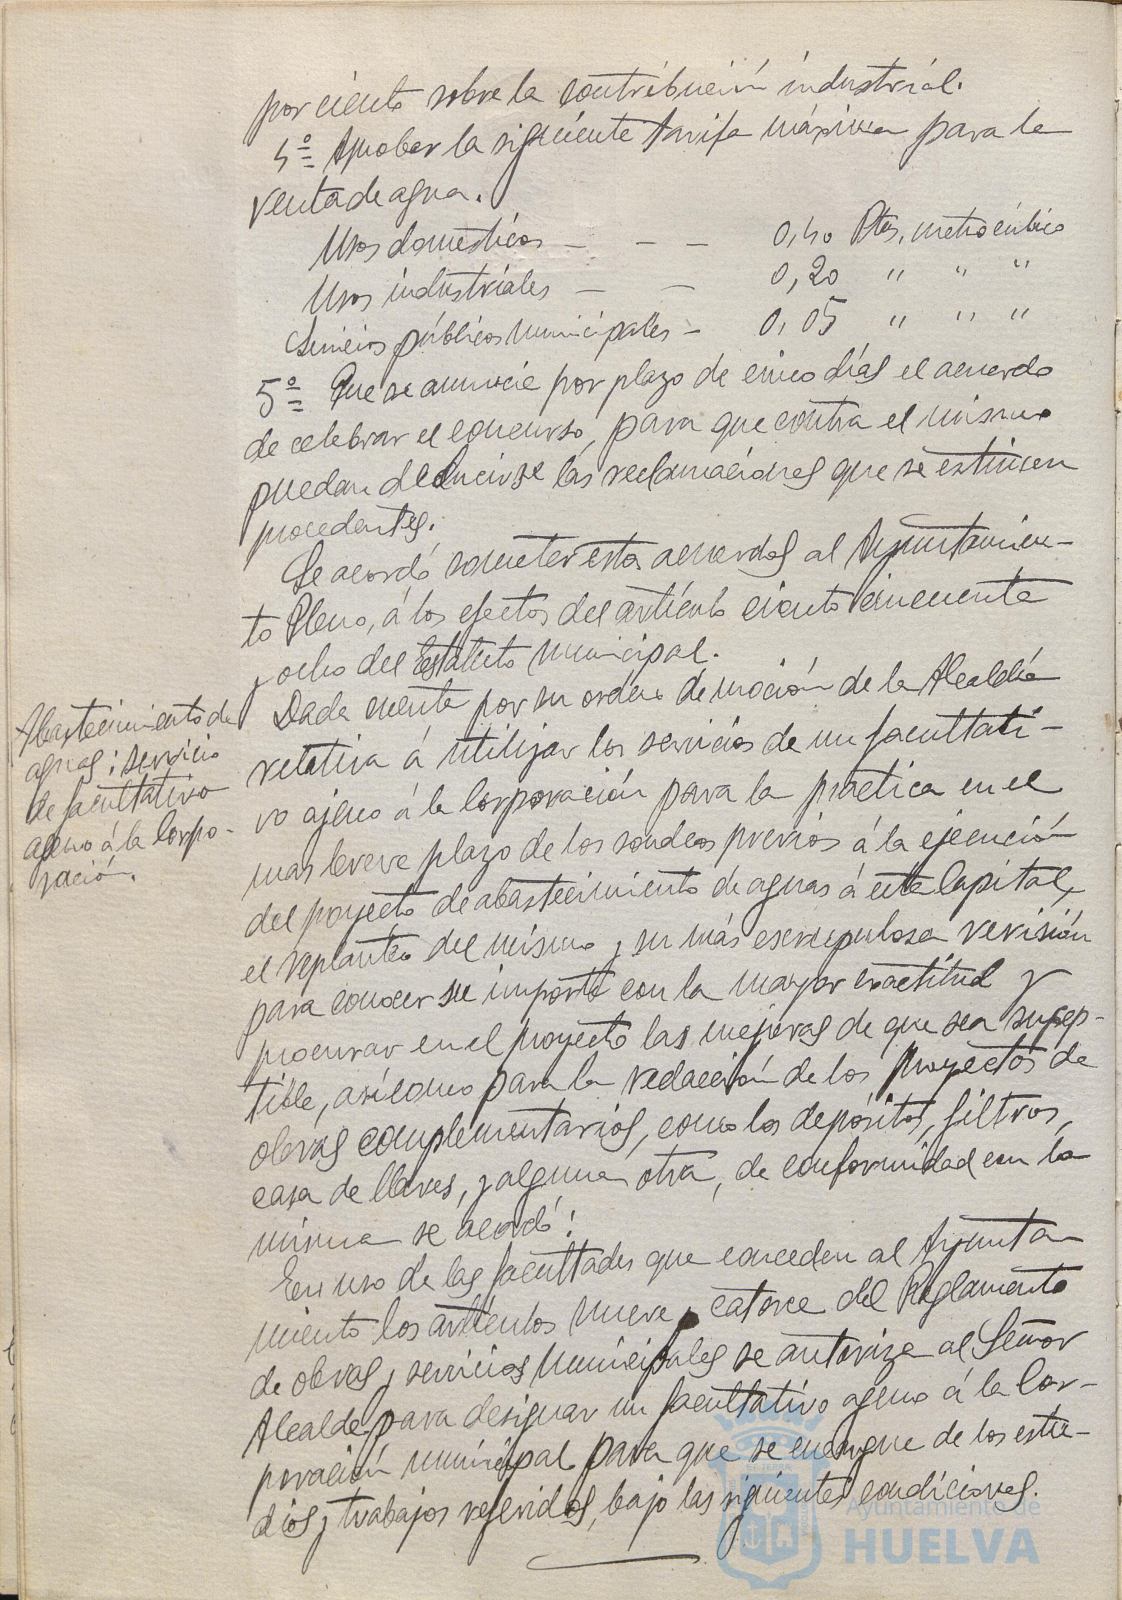 por ciento sobre la contribución industrial.
4º Aprobar la siguiente tarifa máxima para la
venta de agua.
Usos domésticos — — — 0,40 Ptas. metro cúbico
Usos industriales — — 0,20 " " "
Servicios públicos municipales — 0,05 " " "
5º Que se anuncie por plazo de cinco días el acuerdo
de celebrar el concurso, para que contra el mismo
puedan deducirse las reclamaciones que se estimen
procedentes.
Se acordó someter estos acuerdos al Ayuntamien-
to Pleno, á los efectos del artículo ciento cincuenta
y ocho del Estatuto Municipal.
Abastecimiento de
aguas: servicio
de facultativo
ageno á la Corpo-
ración.
Dada cuenta por su orden de moción de la Alcaldía
relativa á utilizar los servicios de un facultati-
vo ajeno á la Corporación para la práctica en el
mas breve plazo de los sondeos previos á la ejecución
del proyecto de abastecimiento de aguas á esta Capital,
el replanteo del mismo y su más escrupulosa revisión
para conocer su importe con la mayor exactitud y
procurar en el proyecto las mejoras de que sea suscep-
tible, así como para la redacción de los proyectos de
obras complementarios, como los depósitos, filtros,
casa de llaves, y alguna otra, de conformidad con la
misma se acordó:
En uso de las facultades que conceden al Ayunta
miento los artículos nueve y catorce del Reglamento
de obras y servicios Municipales se autoriza al Señor
Alcalde para designar un facultativo ageno á la Cor-
poración municipal para que se encargue de los estu-
dios y trabajos referidos, bajo las siguientes condiciones.
Ayuntamiento de
HUELVA